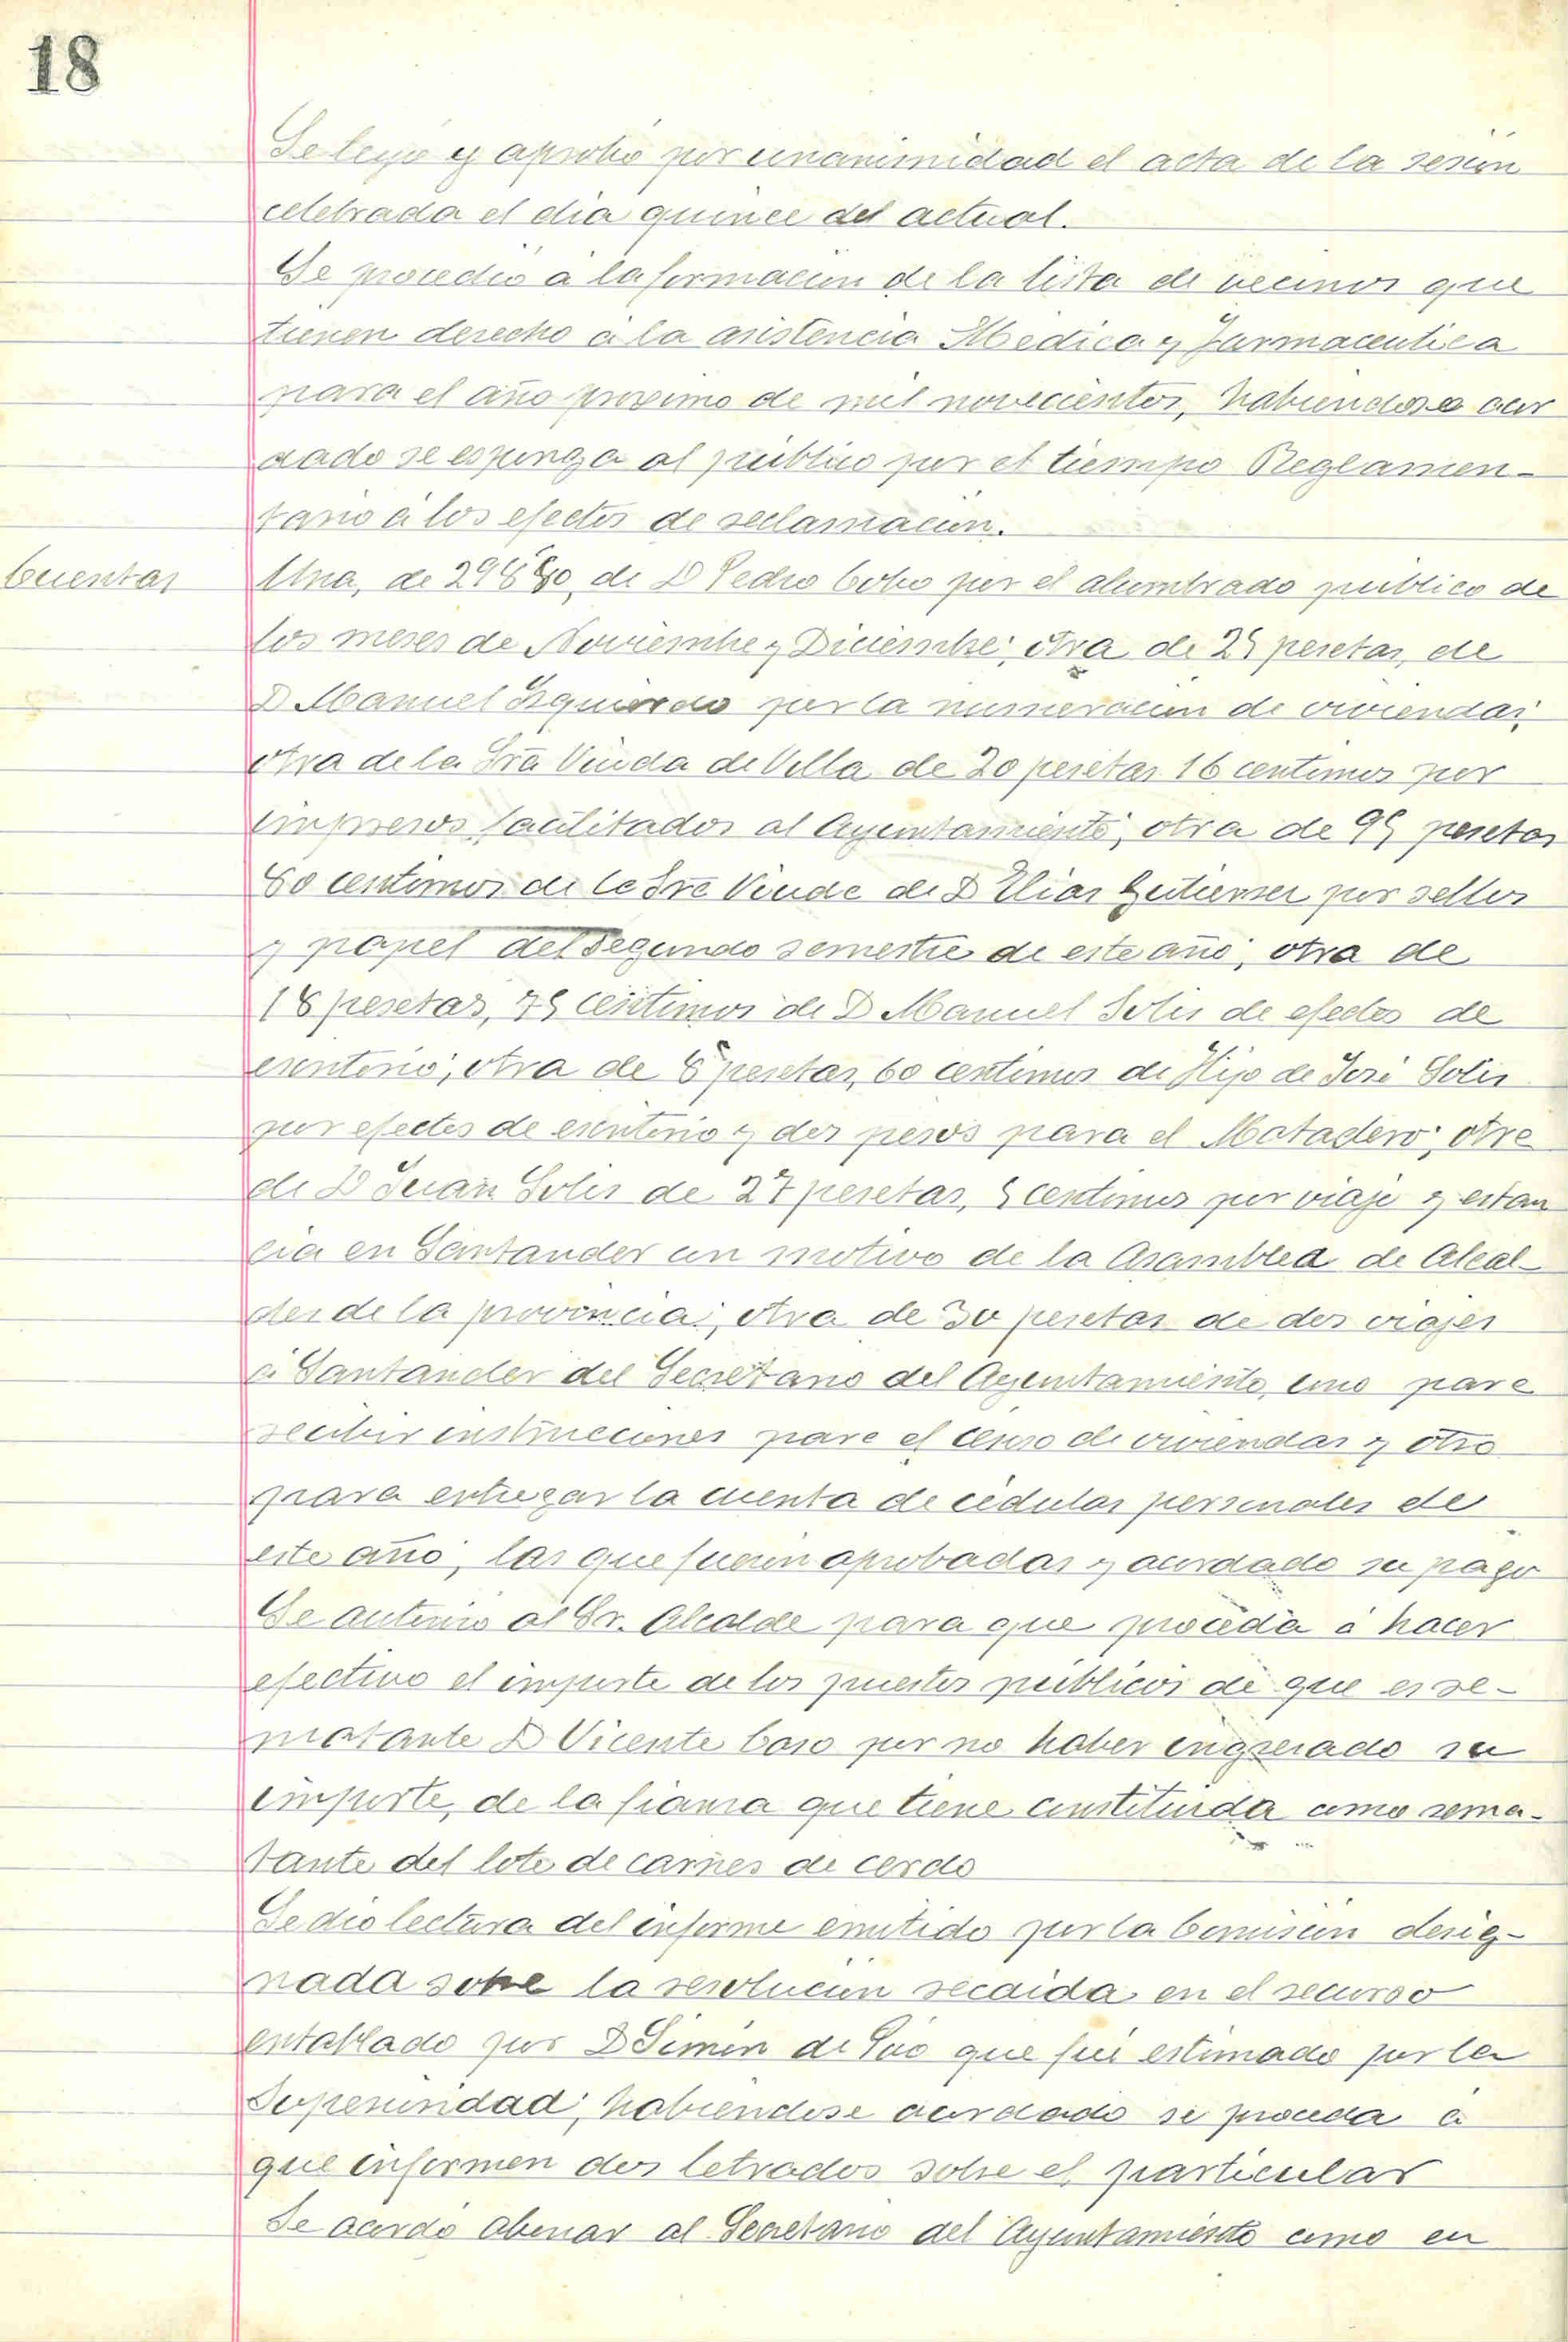 18
Se leyó y aprobó por unanimidad el acta de la sesion
celebrada el dia quince del actual.
Se procedió á la formacion de la lista de vecinos que
tienen derecho á la asistencia Medica y Farmaceutica
para el año proximo de mil novecientos, habiendose acor
dado se esponga al público por el tiempo Reglamen-
tario á los efectos de reclamacion.
Cuentas
Una, de de D Pedro Cobo por el alumbrado publico de
los meses de Noviembre y Diciembre; otra de 25 pesetas, de
D Manuel Izquierdo por la numeracion de viviendas;
otra de la Sra Viuda de Villa de 20 pesetas 16 centimos por
impresos facilitados al Ayuntamiento; otra de 95 pesetas
60 centimos de la Sra Viuda de D Elias Gutierrez por sellos
y papel del segundo semestre de este año; otra de
18 pesetas, 75 centimos de D Manuel Solis de efectos de
escritorio; otra de 8 pesetas, 60 centimos de Hijo de José Solis
por efectos de escritorio y dos pesos para el Matadero; otra
de D Juan Solis de 27 pesetas, 5 centimos por viaje y estan
cia en Santander con motivo de la Asamblea de Alcal-
des de la provincia; otra de 30 pesetas de dos viajes
á Santander del Secretario del Ayuntamiento, uno para
recibir instrucciones para el censo de viviendas y otro
para entregar la cuenta de cédulas personales de
este año; las que fueron aprobadas y acordado su pago
Se autorizó al Sr. Alcalde para que proceda á hacer
efectivo el importe de los puestos publicos de que es re-
matante D Vicente Caso por no haber ingresado su
importe, de la fianza que tiene constituida como rema-
tante del lote de carnes de cerdo
Se dio lectura del informe emitido por la Comision desig-
nada sobre la resolucion recaida en el recurso
entablado por D Simon de que fué estimado por la
Superioridad; habiendose acordado se proceda á
que informen dos letrados sobre el particular
Se acordó abonar al Secretario del Ayuntamiento como en